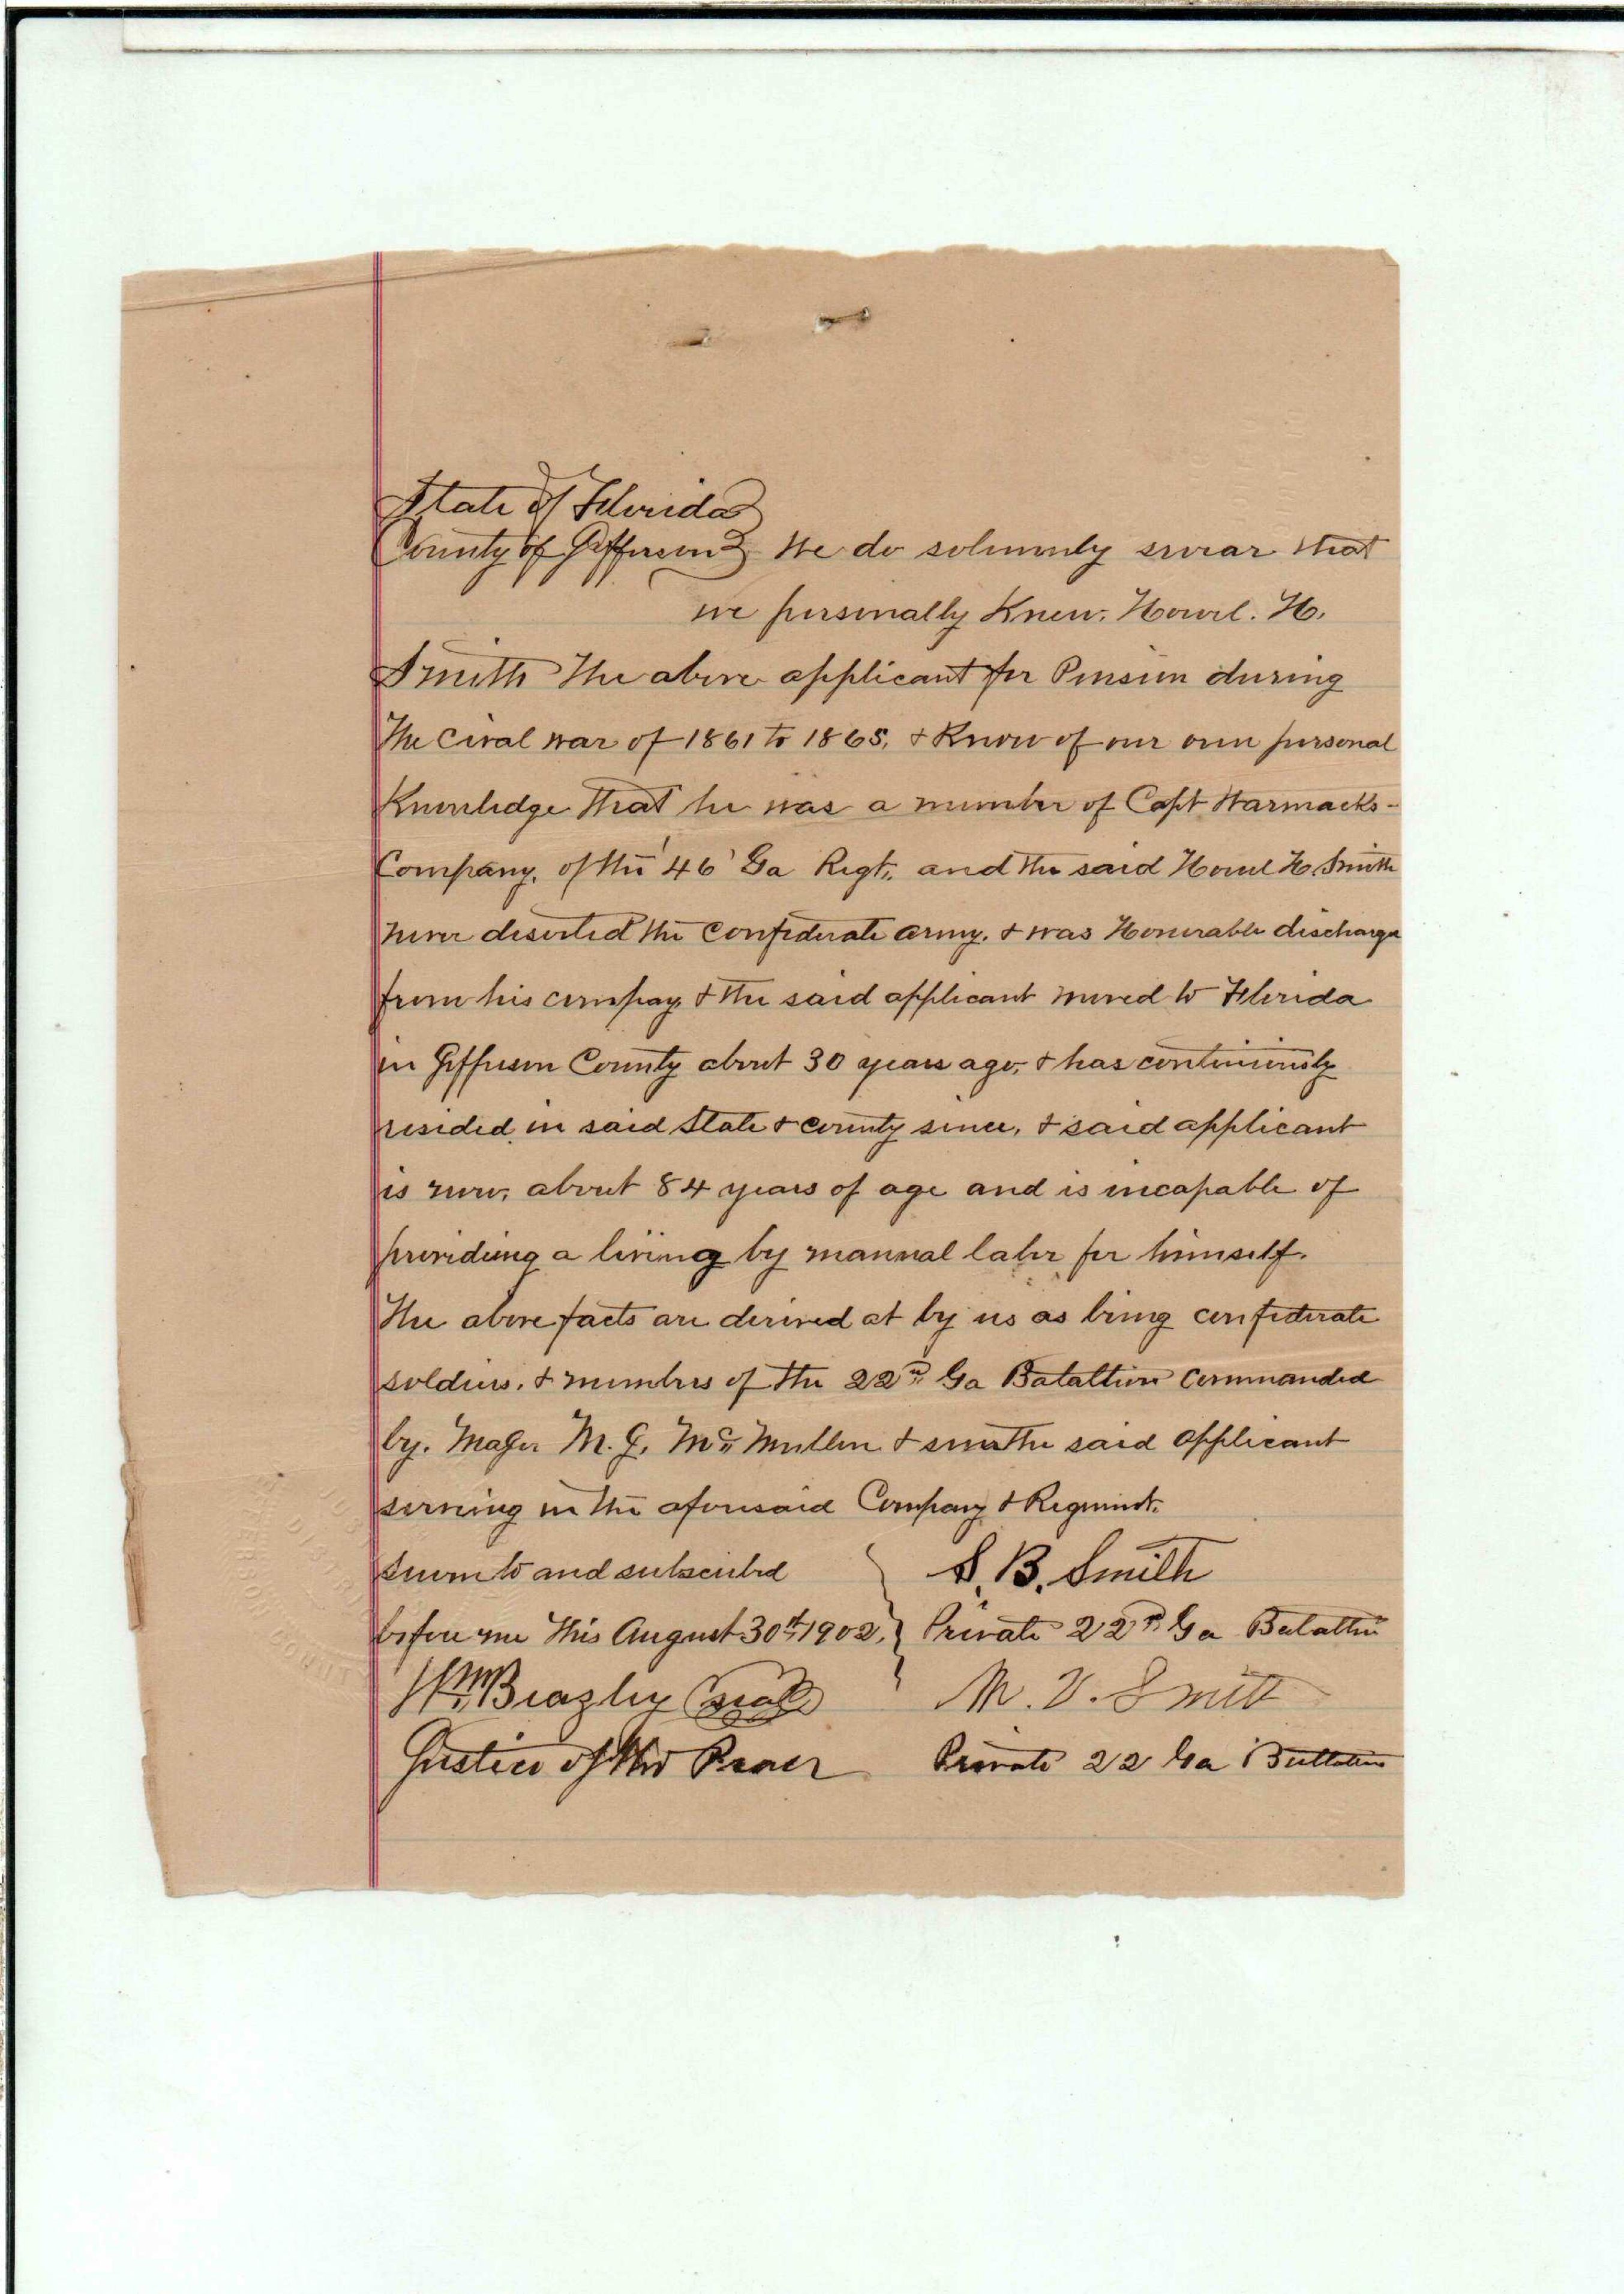 State of Florida
County of Jefferson } We do solumnly swear that
we personally Knew. Howel. H.
Smith The above applicant for Pension during
The Cival war of 1861 to 1865, & Know of our own personal
Knowledge That he was a member of Capt Warmacks-
Company, of the '46' Ga Regt, and the said Howel H. Smith
never deserted the Confederate army. & was Honerable discharge
from his compay, & the said applicant moved to Florida
in Jefferson County about 30 years ago, & has continiously
resided in said State & County since, & said applicant
is now, about 84 years of age and is incapable of
providing a living by manual labor for himself.
The above facts are derived at by us as being confederate
soldiers, & members of the 22nd Ga Batattion Commanded
by. Major M. J. Mc Mullen & saw the said applicant
serving in the aforesaid Company & Regiment.
Sworn to and subscribd
before me this August 30th 1902. }
Wm Beazley (seal)
Justice of the Peace
S. B. Smith
Private 22nd Ga Batattion
M. V. Smith
Private 22 Ga Battalion
JEFFERSON COUNTY